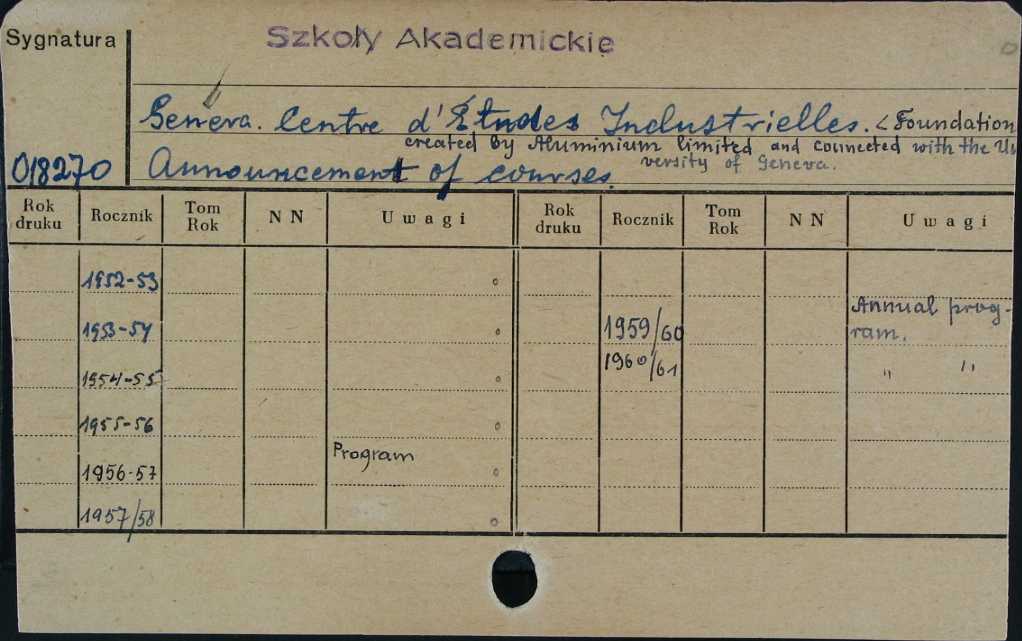 Sygnatura
Szkoły Akademickie
Genéva. Centre d'Études Industrielles. <Foundation
created by Aluminium limited and connected with the Uni
018270 Announcement of courses. versity of Geneva.
Rok druku Rocznik Tom Rok NN Uwagi Rok druku Rocznik Tom Rok NN Uwagi
1952-53
1953-54 1959/60 Annual prog-
ram.
1954-55 1960/61 " "
1955-56
1956-57 Program
1957/58